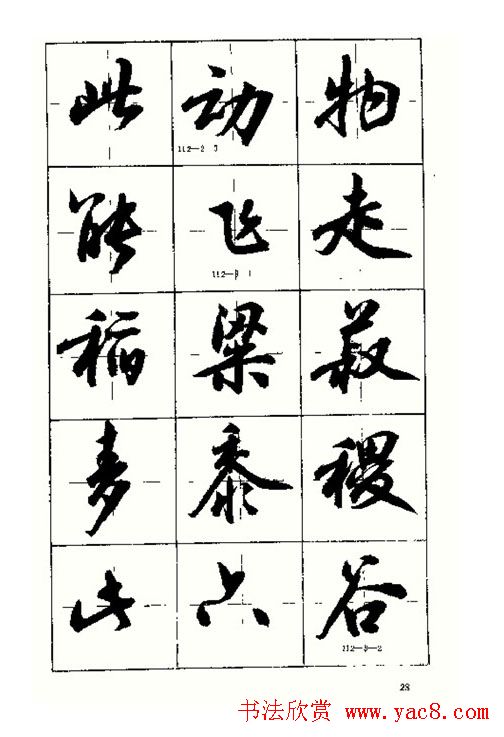 此动物
112—2 3
能飞走
112—3 1
稻粱菽
麦黍稷
此六谷
112—3—2
28
书法欣赏 www.yac8.com